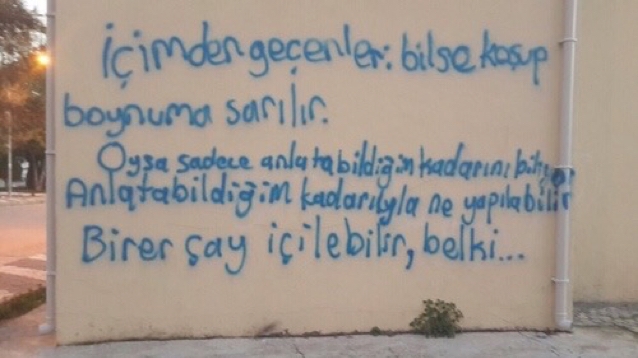 İçimden geçenleri bilse koşup
boynuma sarılır.
Oysa sadece anlatabildiğim kadarını biliyor
Anlatabildiğim kadarıyla ne yapılabilir
Birer çay içilebilir, belki...